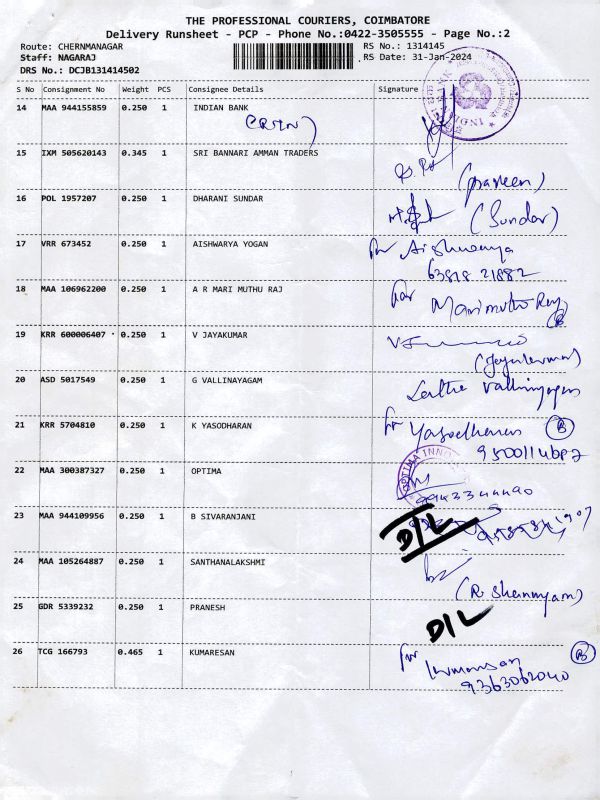 THE PROFESSIONAL COURIERS, COIMBATORE
Delivery Runsheet - PCP - Phone No.:0422-3505555 - Page No.:2
Route: CHERNMANAGAR RS No.: 1314145
Staff: NAGARAJ RS Date: 31-Jan-2024
DRS No.: DCJB131414502
S No Consignment No Weight PCS Consignee Details Signature
14 MAA 944155859 0.250 1 INDIAN BANK
15 IXM 505620143 0.345 1 SRI BANNARI AMMAN TRADERS
(praveen)
16 POL 1957207 0.250 1 DHARANI SUNDAR
(Sundar)
17 VRR 673452 0.250 1 AISHWARYA YOGAN
for Aishwarya
63818 21882
18 MAA 106962200 0.250 1 A R MARI MUTHU RAJ
for Marimuthu Raj
19 KRR 600006407 1 0.250 V JAYAKUMAR
(Jayakumar)
20 ASD 5017549 0.250 1 G VALLINAYAGAM
Vallinayagam
21 KRR 5704810 0.250 1 K YASODHARAN
for Yasodharan B
22 MAA 300387327 0.250 1 OPTIMA
OPTIMA INNO
23 MAA 944109956 0.250 1 B SIVARANJANI
D/L
24 MAA 105264887 0.250 1 SANTHANALAKSHMI
25 GDR 5339232 0.250 1 PRANESH
D/L
26 TCG 166793 0.465 1 KUMARESAN
for Kumaresan B
9363062040